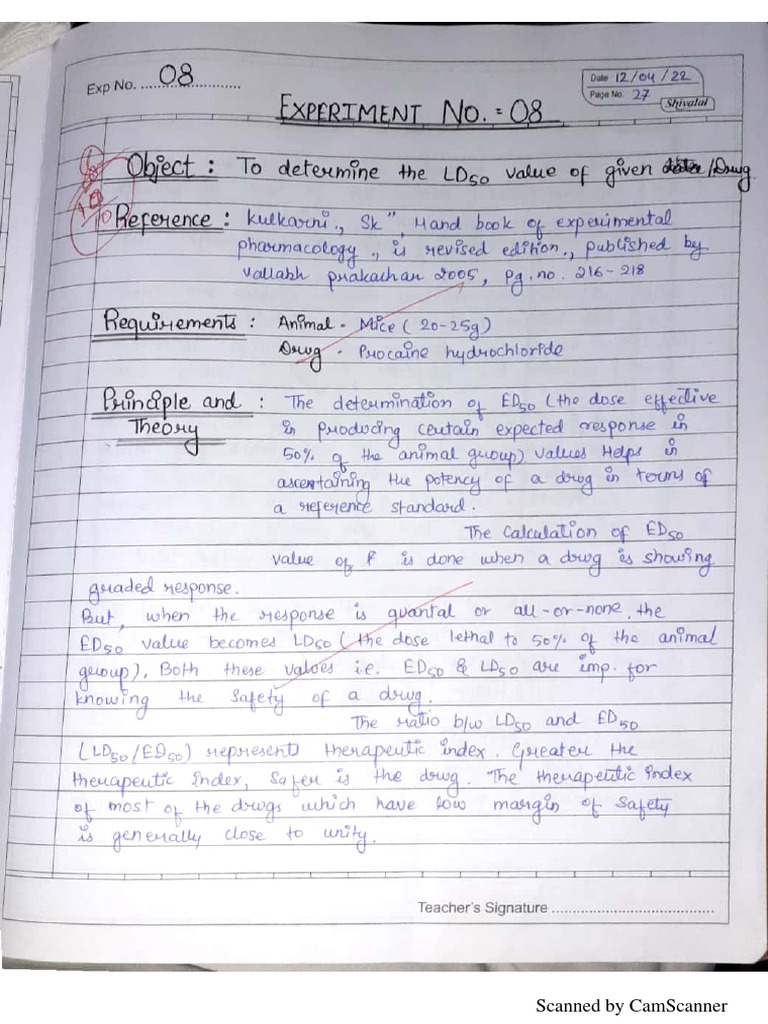 Exp No. 08
Date 12/04/22
Page No. 27
Shivalal
EXPERIMENT NO. = 08
Object : To determine the LD50 value of given /Drug
Reference : Kulkarni., Sk", Hand book of experimental
pharmacology., is revised edition., published by
vallabh prakashan 2005, pg. no. 216-218
Requirements : Animal - Mice (20-25g)
Drug - Procaine hydrochloride
Principle and : The determination of ED50 (the dose effective
Theory in producing certain expected response in
50% of the animal group) values Helps in
ascertaining the potency of a drug in terms of
a reference standard.
The calculation of ED50
value of is done when a drug is showing
graded response.
But, when the response is quantal or all-or-none, the
ED50 value becomes LD50 (the dose lethal to 50% of the animal
group). Both these values i.e. ED50 & LD50 are imp. for
knowing the safety of a drug.
The ratio b/w LD50 and ED50
(LD50/ED50) represents therapeutic index. Greater the
therapeutic index, safer is the drug. The therapeutic index
of most of the drugs which have low margin of safety
is generally close to unity.
Teacher's Signature
Scanned by CamScanner